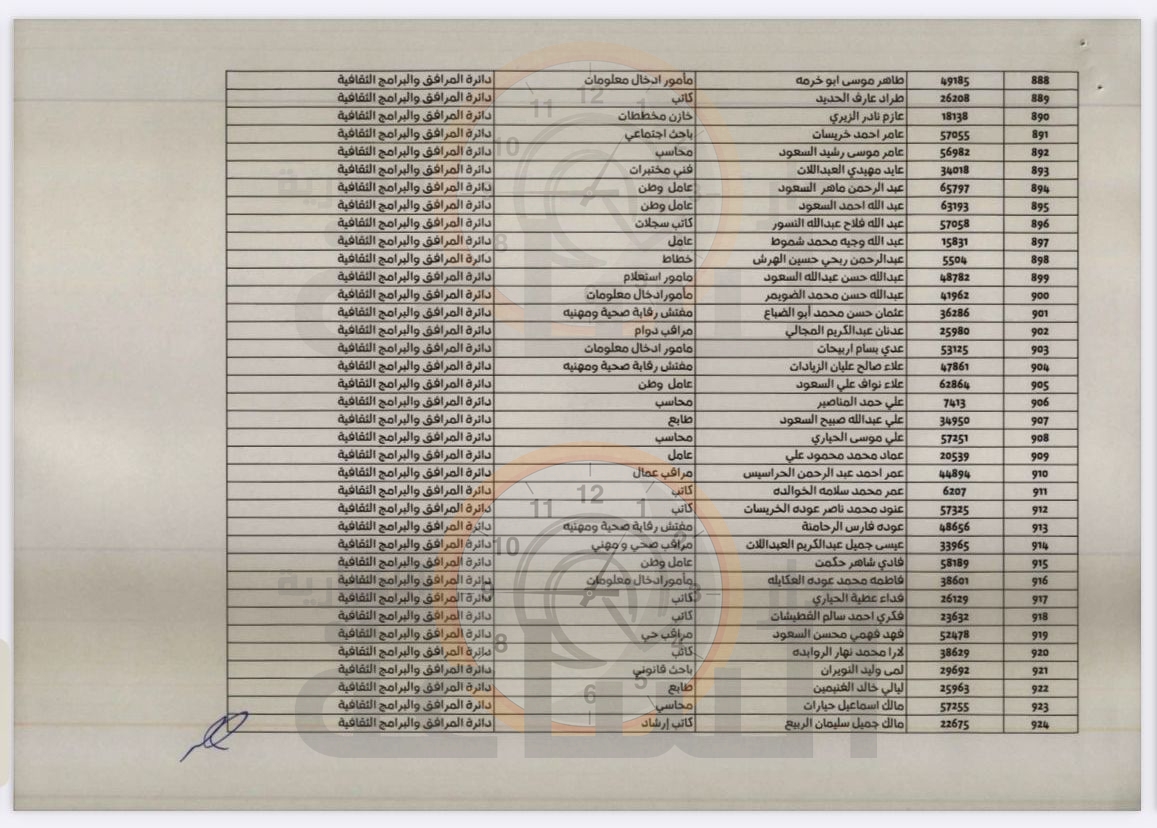 888 49185 طاهر موسى ابو خرمه مأمور ادخال معلومات دائرة المرافق والبرامج الثقافية
889 26208 طراد عارف الحديد كاتب دائرة المرافق والبرامج الثقافية
890 18138 عازم نادر الزيري خازن مخططات دائرة المرافق والبرامج الثقافية
891 57055 عامر احمد خريسات باحث اجتماعي دائرة المرافق والبرامج الثقافية
892 56982 عامر موسى رشيد السعود محاسب دائرة المرافق والبرامج الثقافية
893 34018 عايد مهيدي العبداللات فني مختبرات دائرة المرافق والبرامج الثقافية
894 65797 عبد الرحمن ماهر السعود عامل وطن دائرة المرافق والبرامج الثقافية
895 63193 عبد الله احمد السعود عامل وطن دائرة المرافق والبرامج الثقافية
896 57058 عبد الله فلاح عبدالله النسور كاتب سجلات دائرة المرافق والبرامج الثقافية
897 15831 عبد الله وجيه محمد شموط عامل دائرة المرافق والبرامج الثقافية
898 5504 عبدالرحمن ربحي حسين الهرش خطاط دائرة المرافق والبرامج الثقافية
899 48782 عبدالله حسن عبدالله السعود مامور استعلام دائرة المرافق والبرامج الثقافية
900 41962 عبدالله حسن محمد الضويمر مأمورادخال معلومات دائرة المرافق والبرامج الثقافية
901 36286 عثمان حسن محمد أبو الضباع مفتش رقابة صحية ومهنيه دائرة المرافق والبرامج الثقافية
902 25980 عدنان عبدالكريم المجالي مراقب دوام دائرة المرافق والبرامج الثقافية
903 53125 عدي بسام اربيحات مامور ادخال معلومات دائرة المرافق والبرامج الثقافية
904 47861 علاء صالح عليان الزيادات مفتش رقابة صحية ومهنيه دائرة المرافق والبرامج الثقافية
905 62864 علاء نواف علي السعود عامل وطن دائرة المرافق والبرامج الثقافية
906 7413 علي حمد المناصير محاسب دائرة المرافق والبرامج الثقافية
907 34950 علي عبدالله صبيح السعود طابع دائرة المرافق والبرامج الثقافية
908 57251 علي موسى الحياري محاسب دائرة المرافق والبرامج الثقافية
909 20539 عماد محمد محمود علي عامل دائرة المرافق والبرامج الثقافية
910 44894 عمر احمد عبد الرحمن الحراسيس مراقب عمال دائرة المرافق والبرامج الثقافية
911 6207 عمر محمد سلامه الخوالده كاتب دائرة المرافق والبرامج الثقافية
912 57325 عنود محمد ناصر عوده الخريسات كاتب دائرة المرافق والبرامج الثقافية
913 48656 عوده فارس الرحامنة مفتش رقابة صحية ومهنيه دائرة المرافق والبرامج الثقافية
914 33965 عيسى جميل عبدالكريم العبداللات مراقب صحي و مهني دائرة المرافق والبرامج الثقافية
915 58189 فادي شاهر حكمت عامل وطن دائرة المرافق والبرامج الثقافية
916 38601 فاطمه محمد عوده العكايله مأمورادخال معلومات دائرة المرافق والبرامج الثقافية
917 26129 فداء عطية الحياري كاتب دائرة المرافق والبرامج الثقافية
918 23632 فكري احمد سالم القطيشات كاتب دائرة المرافق والبرامج الثقافية
919 52478 فهد فهمي محسن السعود مراقب حي دائرة المرافق والبرامج الثقافية
920 38629 لارا محمد نهار الروابده كاتب دائرة المرافق والبرامج الثقافية
921 29692 لمى وليد النويران باحث قانوني دائرة المرافق والبرامج الثقافية
922 25963 ليالي خالد الغنيمين طابع دائرة المرافق والبرامج الثقافية
923 57255 مالك اسماعيل حيارات محاسب دائرة المرافق والبرامج الثقافية
924 22675 مالك جميل سليمان الربيع كاتب إرشاد دائرة المرافق والبرامج الثقافية